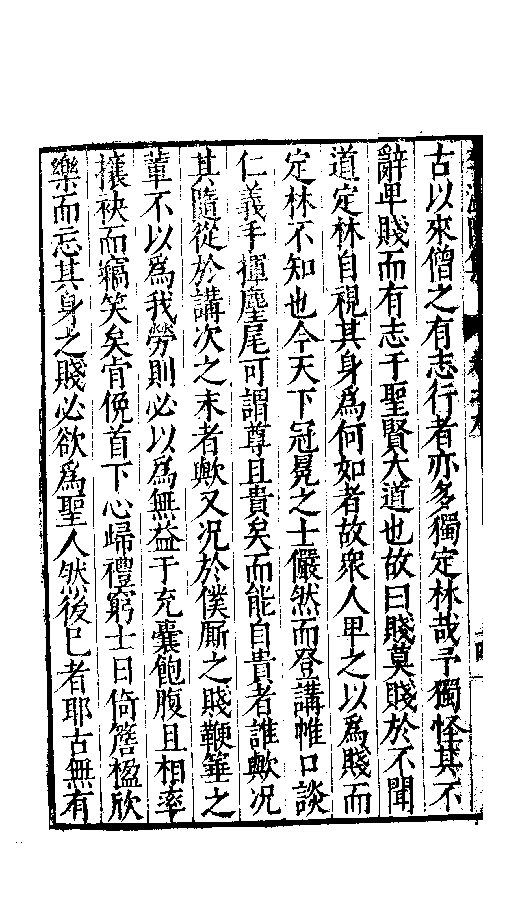 古以來僧之有志行者亦多獨定林哉予獨怪其不
辭卑賤而有志于聖賢大道也故曰賤莫賤於不聞
道定林自視其身爲何如者故衆人卑之以爲賤而
定林不知也今天下冠冕之士儼然而登講帷口談
仁義手揮麈尾可謂尊且貴矣而能自貴者誰歟况
其隨從於講次之末者歟又况於僕厮之賤鞭箠之
輩不以爲我勞則必以爲無益于充囊飽腹且相率
攘袂而竊笑矣肯俛首下心歸禮窮士日倚簷楹欣
樂而忘其身之賤必欲爲聖人然後已者耶古無有